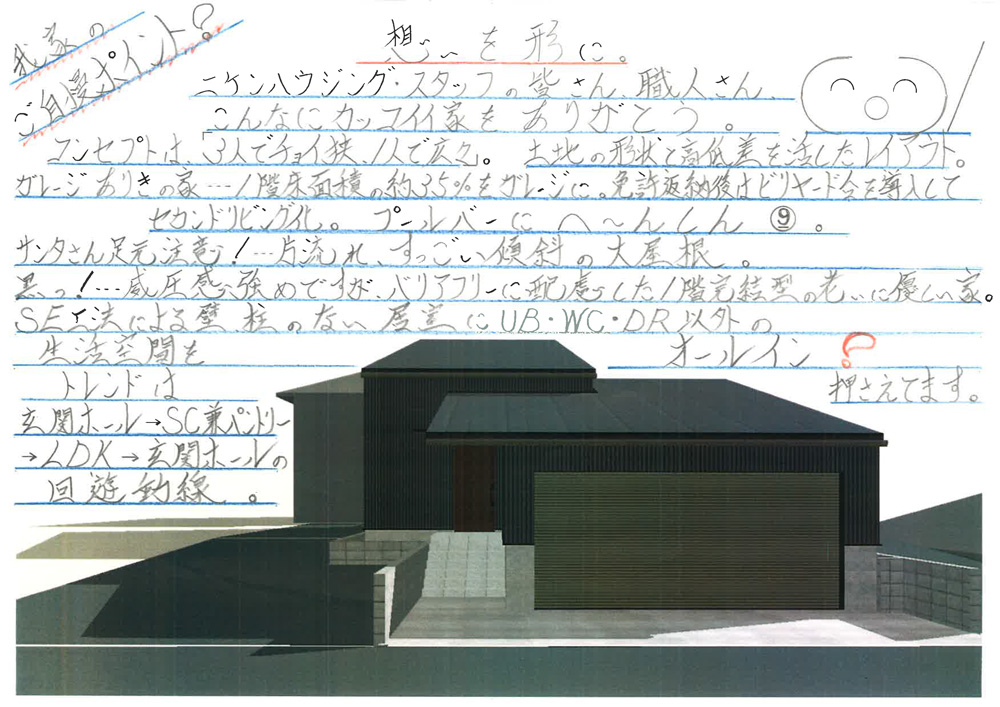 我家の
ご自慢ポイント?
想いを形に。
ニケンハウジング・スタッフの皆さん、職人さん、
こんなにカッコイイ家をありがとう。
コンセプトは、3人でチョイ狭、1人で広々。 土地の形状と高低差を活したレイアウト。
ガレージありきの家…1階床面積の約35%をガレージに。免許返納後はビリヤード台を導入して
セカンドリビング化。 プールバーにへ〜んしん⑨。
サンタさん足元注意!…片流れ、すっごい傾斜の大屋根。
黒っ!…威圧感強めですが、バリアフリーに配慮した1階完結型の老いに優しい家。
SE工法による壁、柱のない居室にUB・WC・DR以外の
生活空間を オールイン?
トレンドは 押さえてます。
玄関ホール→SC兼パントリー
→LDK→玄関ホールの
回遊動線。